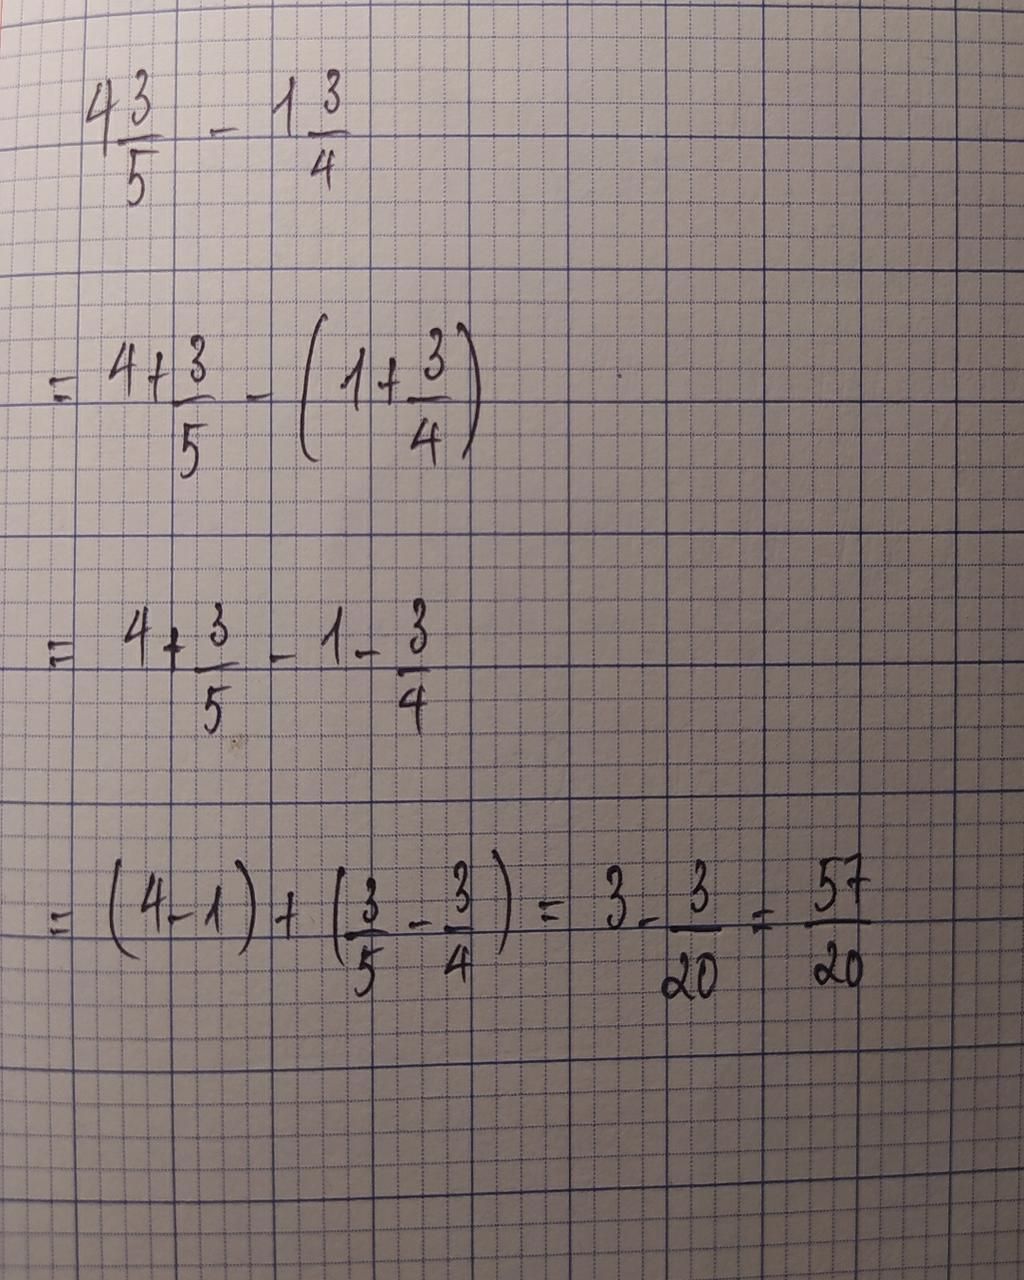 4 3/5 - 1 3/4
= 4 + 3/5 - (1 + 3/4)
= 4 + 3/5 - 1 - 3/4
= (4 - 1) + (3/5 - 3/4) = 3 - 3/20 = 57/20